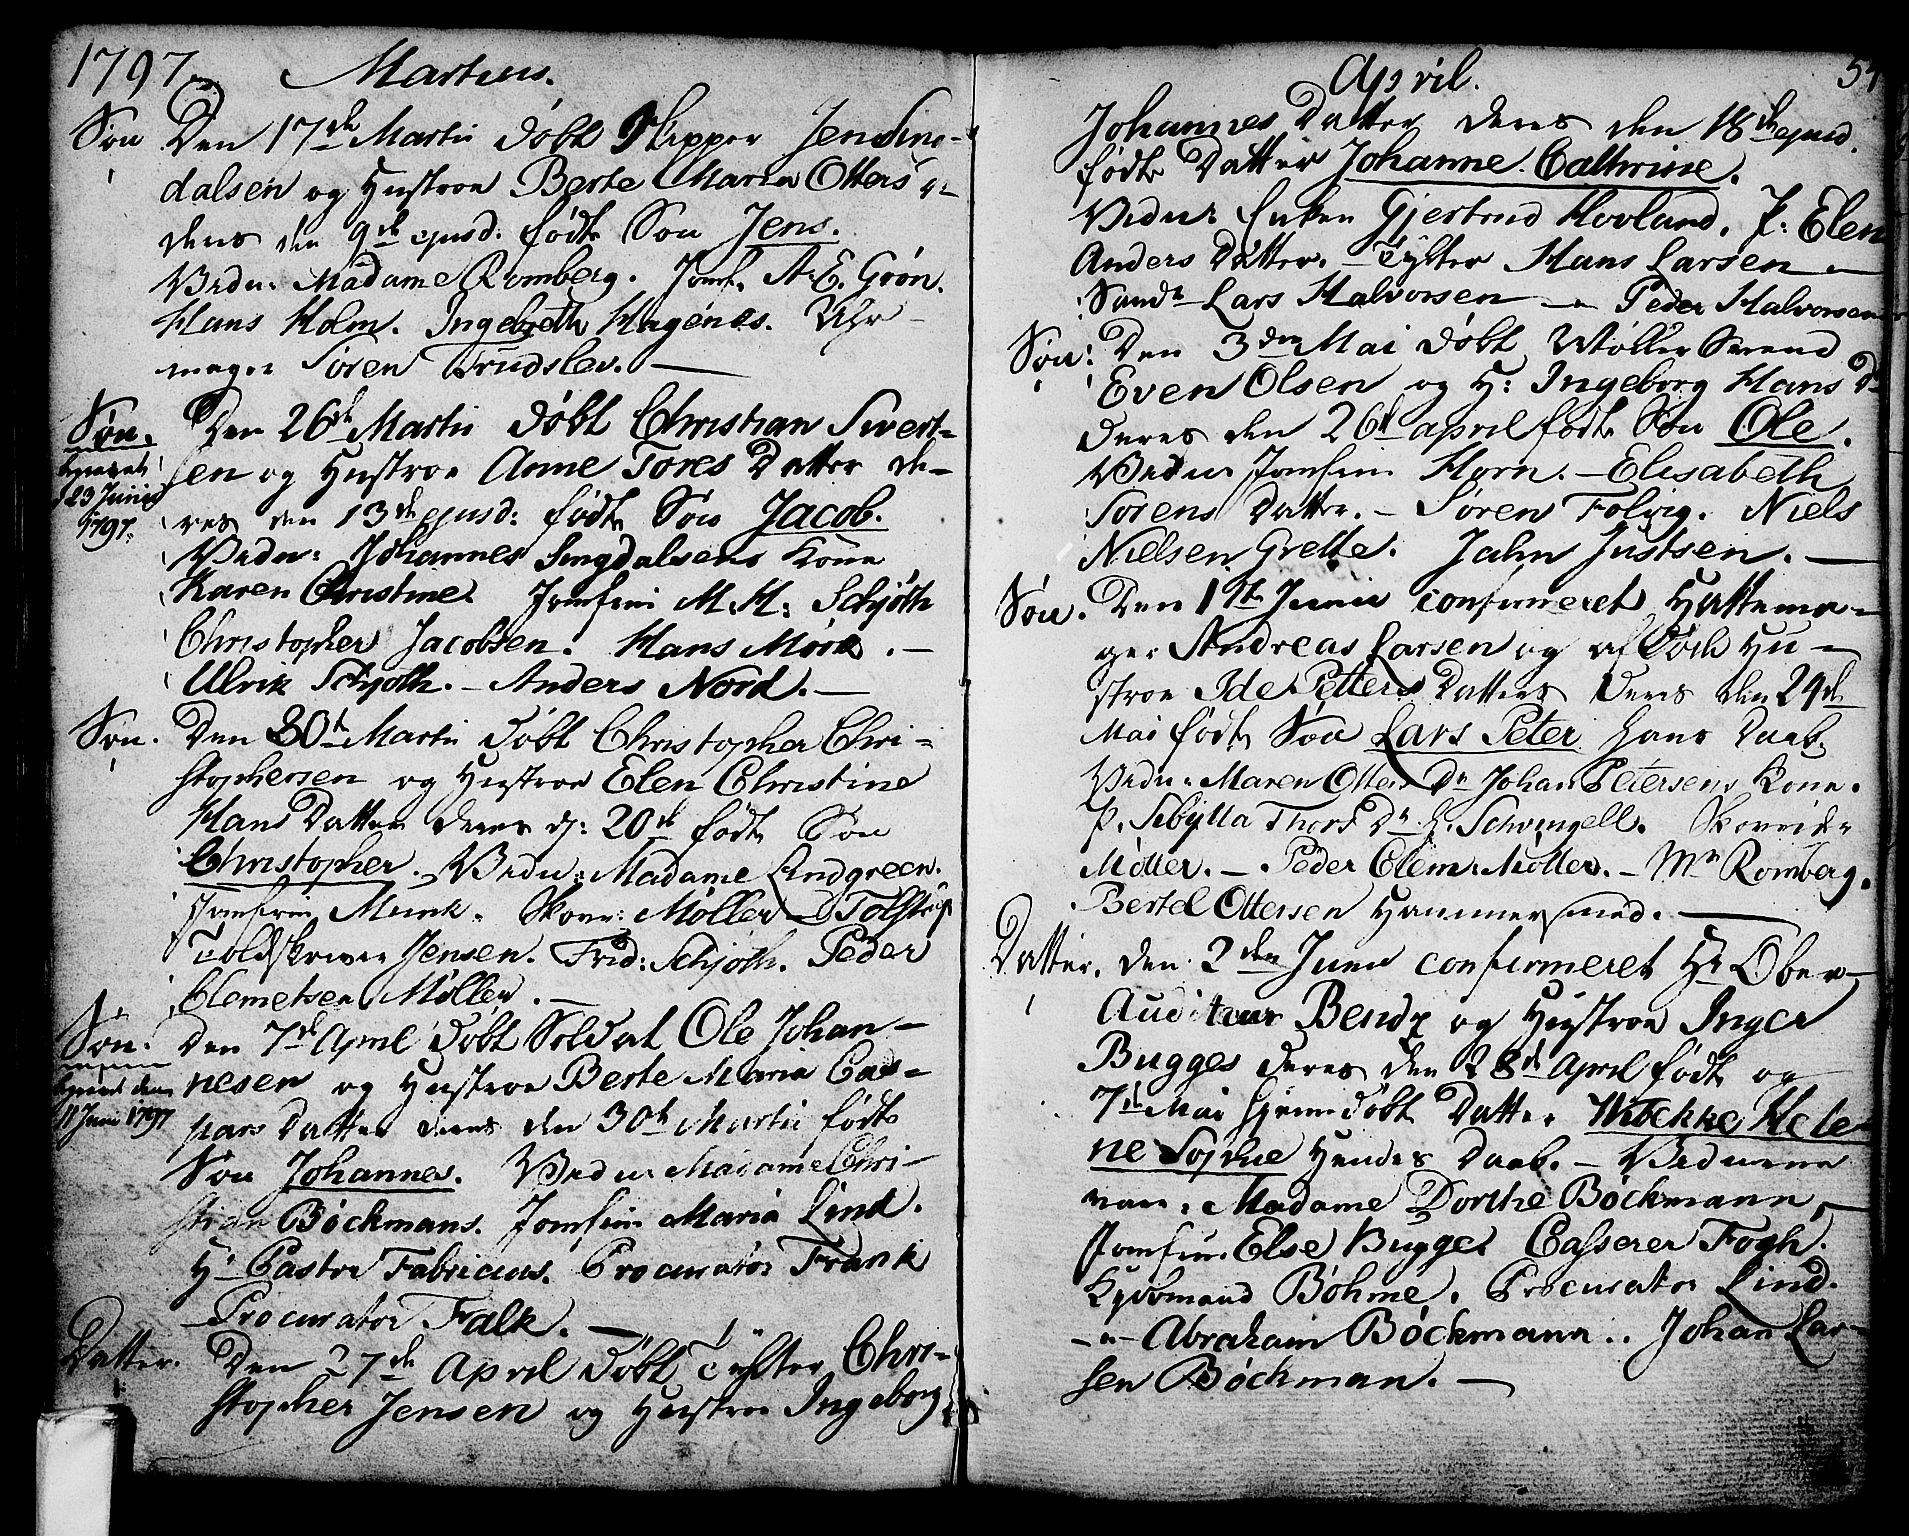 1797. Martius.
Søn Den 17de Martii døbt Skipper Jens Sine-
dalsen og Hustroe Berte Maria Otters
deres den 9de ejusd: fødte Søn Jens.
Vidn: Madame Romberg. Jomf. A. E. Grøn.
Hans Holm. Ingebreth Hagenes. Uhr-
mager Søren Trudslev. —
Søn. Den 26de Martii døbt Christian Sivert-
sen og Hustroe Anne Tores Datter de-
23 Junii
1797.
res den 13de ejusd: fødte Søn Jacob.
Vidn: Johannes Singdalsens Kone
Karen Christine. Jomfrue M. M: Schjøth
Christopher Jacobsen. Hans Mørk. —
Ulrik Schjøth. — Anders Nord. —
Søn. Den 30te Martii døbt Christopher Chri-
stophersen og Hustroe Elen Christine
Hans Datter deres d: 20de fødte Søn
Christopher. Vidn: Madame Lindgreen.
Jomfrue Munk. Skovr: Møller — Tolstrup
Toldskriver Jensen. Frid: Schjøth. Peder
Clemetsen Møller. —
Søn. Den 7de April døbt Soldat Ole Johan-
nesen og Hustroe Berte Maria Cas-
den
11 Juni 1797
pars Datter deres den 30te Martii fødte
Søn Johannes. Vidn: Madame Chri-
stian Bøckmans. Jomfrue Maria Lind.
Hr Pastor Fabricius. Procurator Frank
Procurator Falk. —
Datter. Den 27de April døbt Tyster Chri-
stopher Jensen og Hustroe Ingeborg
April.
Johannes Datter deres den 18de ejusd.
fødte Datter Johanne Cathrine.
Vidn: Enken Gjertrud Hovland. P: Elen
Anders Datter. — Tyster Hans Larsen —
Lars Halvorsen — Peder Halvorsen
Søn: Den 3die Mai døbt Møller Svend
Even Olsen og H: Ingeborg Hans Dr
deres den 26de april fødte Søn Ole.
Vidn: Jomfrue Horn. — Elisabeth
Sørens Datter. — Søren Folvig. Niels
Nielsen Grette. Jahn Justsen. —
Søn. Den 1ste Junii confirmeret Hattema-
ger Andreas Larsen og Hu-
stroe Ide Petters Datters deres den 24de
Mai fødte Søn Lars Peter Hans Daab.
Vidn: Maren Otters Dr Johan Petersens Kone.
P. Sebylla Thors Dr H. Schvengell. Skovrider
Møller. — Peder Clem: Møller. — Mr Romberg.
Bertel Ottersen Hammersmed. —
Datter. Den 2den Junii confirmeret Hr Ober-
Auditeur Bendx og Hustroe Inger
Bugges deres den 28de April fødte og
7de Mai hjemmedøbt Datter Wibekke Hele-
ne Sophie Hendes Daab. — Vidnerne
vare: Madame Dorthe Bøckmann,
Jomfrue Else Bugge. Casserer Fogh.
Kjøbmand Bøhme. Procurator Lind.
— Abraham Bøckmann. Johan Lar-
sen Bøckman. —